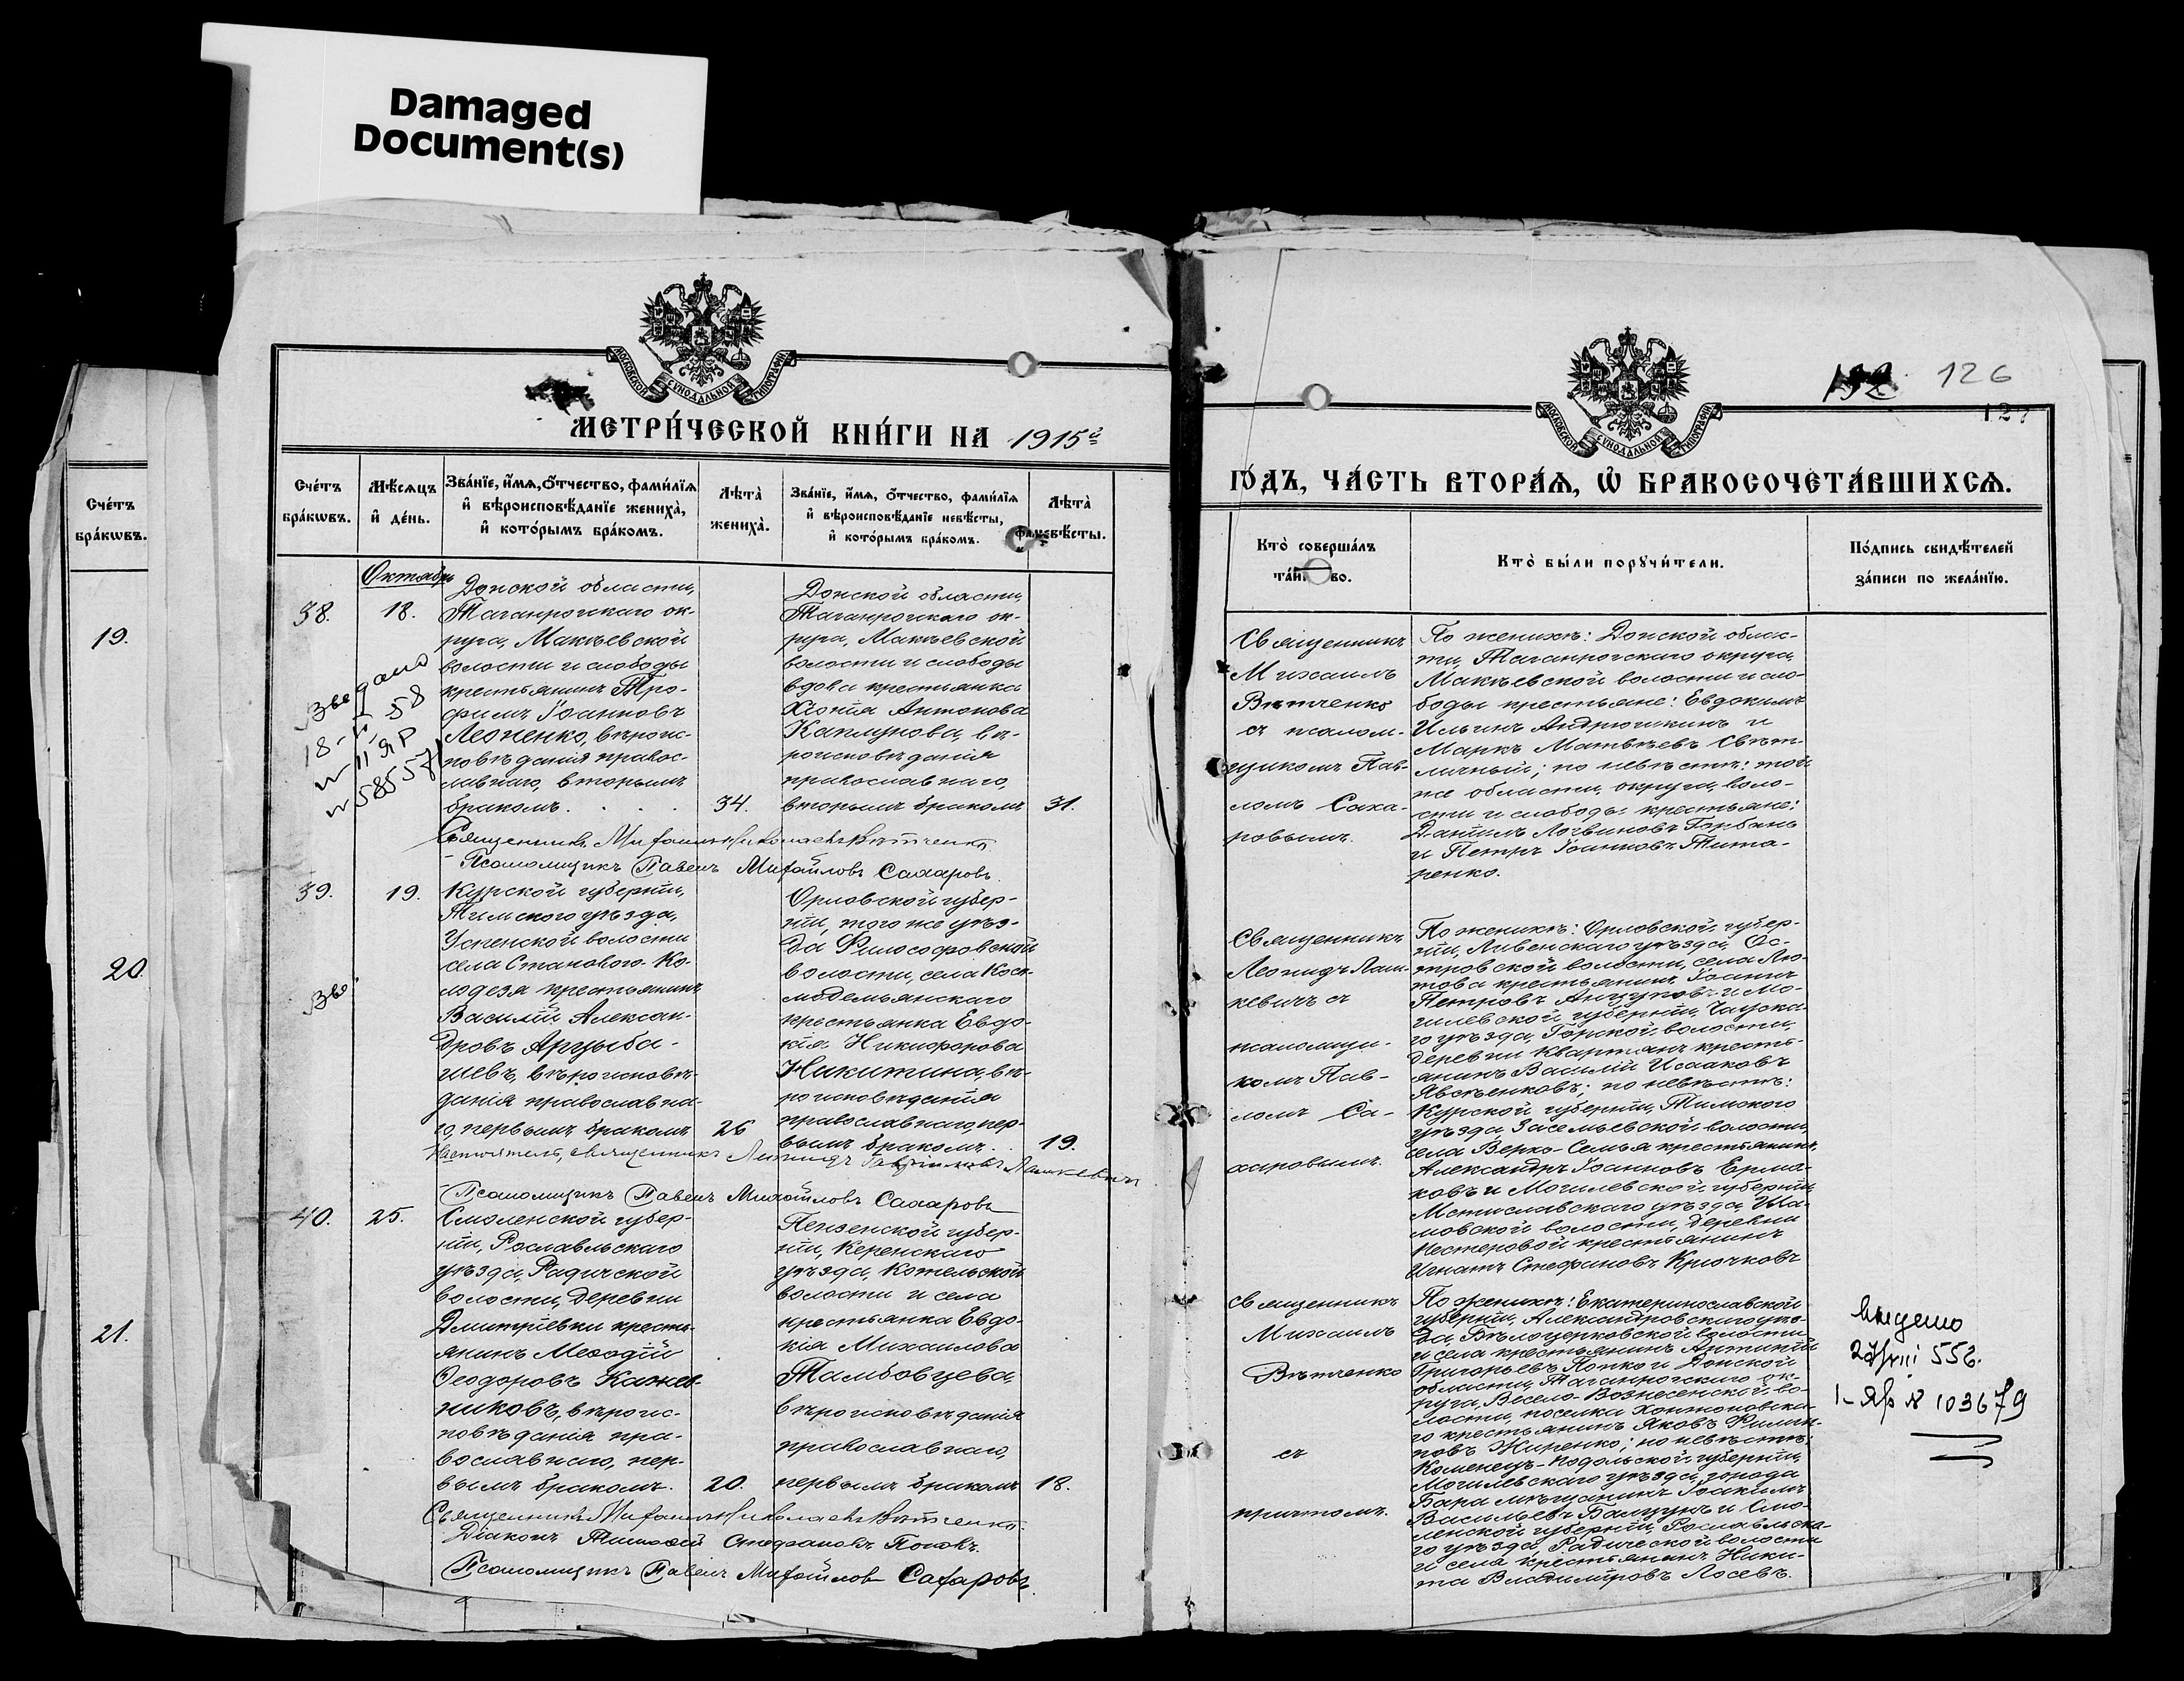 Damaged
Document(s)
МОСКОВСКОЙ СУНОДАЛЬНОЙ ТИПОГРАФІИ
МЕТРИ́ЧЕСКОЙ КНИ́ГИ НА 1915й
Сче́тъ
бра́кѡвъ.
Мѣ́сѧцъ
и҆ де́нь.
Зва́нїе, и҆́мѧ, ѻ҆́тчество, фами́лїѧ
и҆ вѣроисповѣ́данїе жениха̀,
и҆ кото́рымъ бра́комъ.
Лѣта̀
жениха̀.
Зва́нїе, и҆́мѧ, ѻ҆́тчество, фами́лїѧ
и҆ вѣроисповѣ́данїе невѣ́сты,
и҆ кото́рымъ бра́комъ.
Лѣта̀
Октябрь
38.
18.
Донской области,
Таганрогскаго ок-
руга, Макѣевской
волости и слободы
крестьянинъ Тро-
фимъ Іоанновъ
Леоненко, вѣроис-
повѣданія правос-
лавнаго, вторымъ
бракомъ.
34.
Донской области,
Таганрогскаго ок-
руга, Макѣевской
волости и слободы
вдова крестьянка
Хіонія Антонова
Каплунова, вѣ-
роисповѣданія
православнаго,
вторымъ бракомъ
31.
18-II-58
II ЯР
№ 585571
Священникъ Михаилъ Николаевъ Вѣтченко
Псаломщикъ Павелъ Михайловъ Сахаровъ.
39.
19.
Курской губерніи,
Тимского уѣзда,
Успенской волости
села Станового-Ко-
лодезя крестьянинъ
Василій Алексан-
дровъ Арцыба-
шевъ, вѣроисповѣ-
данія православна-
го, первымъ бракомъ
26
Орловской губер-
ніи, того же уѣз-
да Философовской
волости, села Косм-
модемьянскаго
крестьянка Евдо-
кія Никифорова
Никитина, вѣ-
роисповѣданія
православнаго, пер-
вымъ бракомъ.
19.
Настоятель, священникъ Леонидъ Лашкевичъ
Псаломщикъ Павелъ Михайловъ Сахаровъ
40.
25.
Смоленской губер-
ніи, Рославльскаго
уѣзда, Радичской
волости, деревни
Дмитріевки кресть-
янинъ Меѳодій
Ѳеодоровъ Кожев-
никовъ, вѣроис-
повѣданія пра-
вославнаго, пер-
вымъ бракомъ.
20.
Пензенской губер-
ніи, Керенскаго
уѣзда, Котельской
волости и села
крестьянка Евдо-
кія Михаилова
Тамбовцева,
вѣроисповѣданія
православнаго,
первымъ бракомъ
18.
Священникъ Михаилъ Николаевъ Вѣтченко.
Діаконъ Тимоѳей Стефановъ Поповъ.
Псаломщикъ Павелъ Михайловъ Сахаровъ.
Сче́тъ
бра́кѡвъ.
19.
20.
21.
МОСКОВСКОЙ СУНОДАЛЬНОЙ ТИПОГРАФІИ
126
ГО́ДЪ, ЧА́СТЬ ВТОРА́Ѧ, Ѡ҆ БРАКОСОЧЕТА́ВШИХСѦ.
Кто̀ соверша́лъ
Кто̀ бы́ли порꙋчи́тели.
По́дпись свидѣ́телей
за́писи по жела́нїю.
Священникъ
Михаилъ
Вѣтченко
съ псалом-
щикомъ Пав-
ломъ Саха-
ровымъ.
По женихѣ: Донской облас-
ти, Таганрогскаго округа,
Макѣевской волости и сло-
боды крестьяне: Евдокимъ
Ильинъ Андрюшкинъ и
Маркъ Матвѣевъ Свѣт-
личный; по невѣстѣ: той
же области, округа, воло-
сти и слободы крестьяне:
Даніилъ Логвиновъ Горбань
и Петръ Іоанновъ Тита-
ренко.
Священникъ
Леонидъ Лаш-
кевичъ съ
псаломщи-
комъ Пав-
ломъ Са-
харовымъ.
По женихѣ: Орловской губер-
ніи, Ливенскаго уѣзда, Ос-
тровской волости, села Лю-
това крестьянинъ Іоаннъ
Петровъ Анцуповъ и Мо-
гилевской губерніи, Чаусска-
го уѣзда, Горской волости,
деревни Квартянъ кресть-
янинъ Василій Исааковъ
Явсѣенковъ; по невѣстѣ:
Курской губерніи, Тимского
уѣзда Засемьевской волости,
села Верхо-Семья крестьянинъ
Александръ Іоанновъ Ерма-
ковъ и Могилевской губерніи,
Мстиславскаго уѣзда, Ша-
мовской волости, деревни
Нестеровой крестьянинъ
Игнатъ Стефановъ Крючковъ
Священникъ
Михаилъ
Вѣтченко
съ
причтомъ.
По женихѣ: Екатеринославской
губерніи, Александровскаго уѣз-
да, Бѣлоцерковской волости
и села крестьянинъ Антипій
Григорьевъ Попко и Донской
области, Таганрогскаго ок-
руга, Весело-Вознесенской во-
лости, поселка Хонжоновска-
го крестьянинъ Яковъ Филип-
повъ Жиренко; по невѣстѣ:
Каменецъ-Подольской губерніи,
Могилевскаго уѣзда, города
Бара мѣщанинъ Іоакимъ
Васильевъ Балцунъ и Смо-
ленской губерніи, Рославльска-
го уѣзда, Радической волости
и села крестьянинъ Ники-
та Владиміровъ Лосевъ.
1-ЯР № 103679